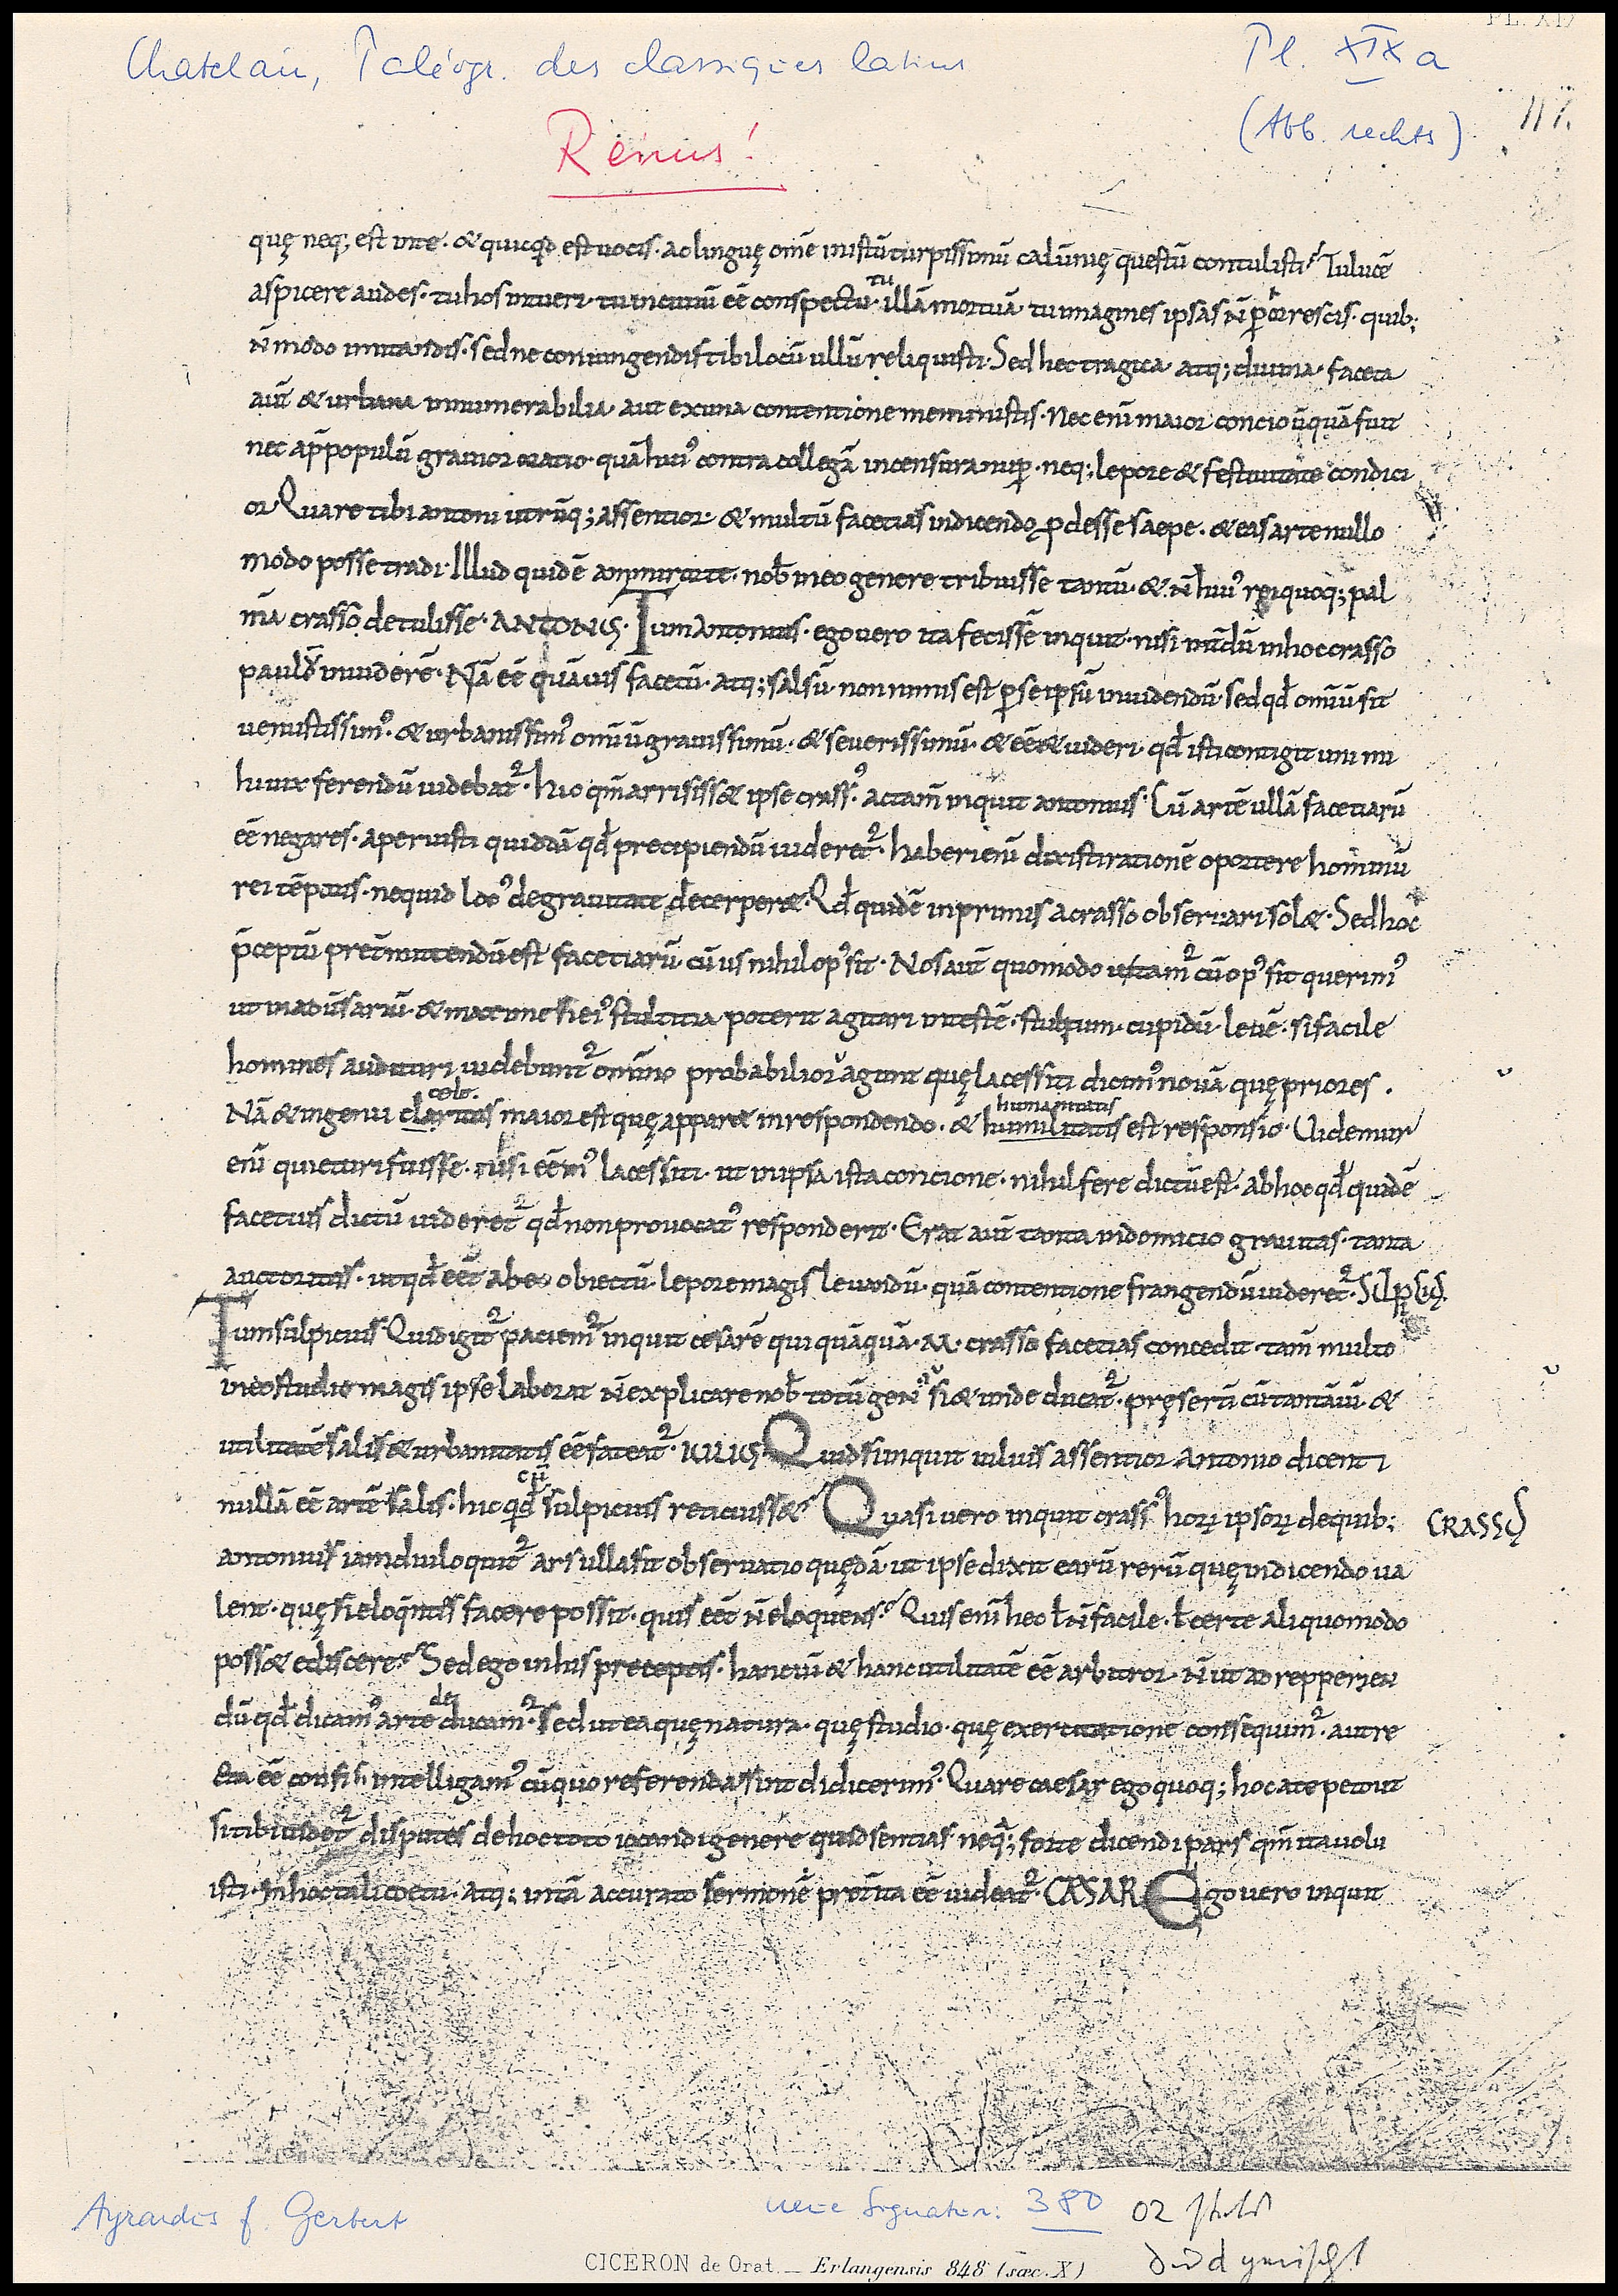 PL. XIX
Chatelain, Paléogr. des classiques latins Pl. XIX a
(Abb. rechts) 117.
Remus!
quę neq; est inte · & quicqd est uocis · ac linguę om̄e inistū turpissimū calūnię questū contulisti? Tu lucē
aspicere audes · tu hos intueri · tu in conspectu · tu illā mortuā tu imagines ipsas n̄ phorrescis · quib;
n̄ modo imitandis · sed ne coniungendis tibi locū ullū reliquisti · Sed hec tragica · atq; diuina · faceta
aūt & urbana innumerabilia · aut ex una contentione meministis · Nec enī maior concio ūquā fuit
nec ap̄ populū grauior oratio · quā hui' contra collegā in censura nup · neq; lepore & festiuitate condici
or · Quare tibi antoni utrūq; assentior · & multū facetias indicendo p desse saepe · & eas arte nullo
modo posse tradi · Illud quidē ammiror te · nob in eo genere tribuisse tantū · & n̄ hui' rei quoq; pal
mā crasso detulisse · ANTONIS · Tum Antonius · ego uero ita fecissē inquit · nisi int̄dū in hoc crasso
paulo inuiderē · Nā eē quāuis facetū · atq; salsū · non nimis est p se ipsū inuidendū · sed qd omīū sit
uenustissim' · & urbanissim' omīū grauissimū · & seuerissimū · & eē & uideri · qd isti contigit uni mi
hi uix ferendū uidebat² · hic qm̄ arrisiss& ipse crass' · ac tam̄ inquit antonius · Cū artē ullā facetiarū
eē negares · aperuisti quiddā qd precipiendū uideret² · haberi enī dixisti rationē oportere hominū
rei tēporis · nequid ioc' de grauitate decerper& · Qd quidē inprimis a crasso obseruari sol& · Sed hoc
p̄ceptū pret̄mittendū est facetiarū · cū us nihil op' sit · Nos aūt quomodo utam² cū op' sit querim'
ut in aduersariū · & maxime si ei' stultitia poterit agitari in testē · stultum · cupidū · leuē · si facile
homines audituri uidebunt² omīno probabiliora sunt quę lacessiti dicim' nouā quę priores ·
cele.
humanitatis
Nā & ingenii claritas maior est quę appar& in respondendo · & humilitatis est responsio · Uidemur
enī quieturi fuisse · nisi eēm' lacessiti · ut in ipsa ista concione · nihil fere dictū est · ab hoc qd quidē
facetius dictū uideret² qd non prouocat' responderit · Erat aūt tanta in domicio grauitas · tanta
auctoritas · ut qd eēt ab eo obiectū · lepore magis leuandū · quā contentione frangendū uideret² · SILPICIS.
Tum sulpicius · Quid igit² paciem² inquit cesarē qui quāquā · M · crasso facetias concedit · tam̄ multo
in eo studio magis ipse laborat n̄ explicare nob totū gen' si & unde ducat² · pręsertī cū tantā uī · &
utilitatē salis & urbanitatis eē fateat² · IULIUS Quid si inquit iuluis assentior Antonio dicenti
cū
nullā eē artē salis · hic qd sulpicius reticuiss& · Quasi uero inquit crass' horū ipsorū de quib; CRASSS
antonius iamdiu loquit² ars ulla sit obseruatio quędā · ut ipse dixit earū rerū quę indicendo ua
lent · quę si eloquentis facere possit · quis eēt n̄ eloquens? Quis enī hec ł n̄ facile · ł certe aliquo modo
poss& ediscere? Sed ego in his preceptis · hanc uī & hanc utilitatē eē arbitror · n̄ ut ad repperien
dū qd dicam' arte de ducam² · sed ut ea quę natura · quę studio · quę exercitatione consequim² · aut re
cta eē confisi · intelligam' cū quo referenda sint didicerim' · Quare caesar ego quoq; hoc a te peto ut
si tibi uidet² disputes de hoc toto iocandi genere quid sentias neq; forte dicendi pars qm̄ ita uolu
isti · In hoc tali coetu · atq; in tā accurato sermonē pret̄ita eē uideat² · CAESAR Ego uero inquit
Ayrardus f. Gerbert neue Signatur: 380
CICERON de Orat. _ Erlangensis 848 (sæc. X)